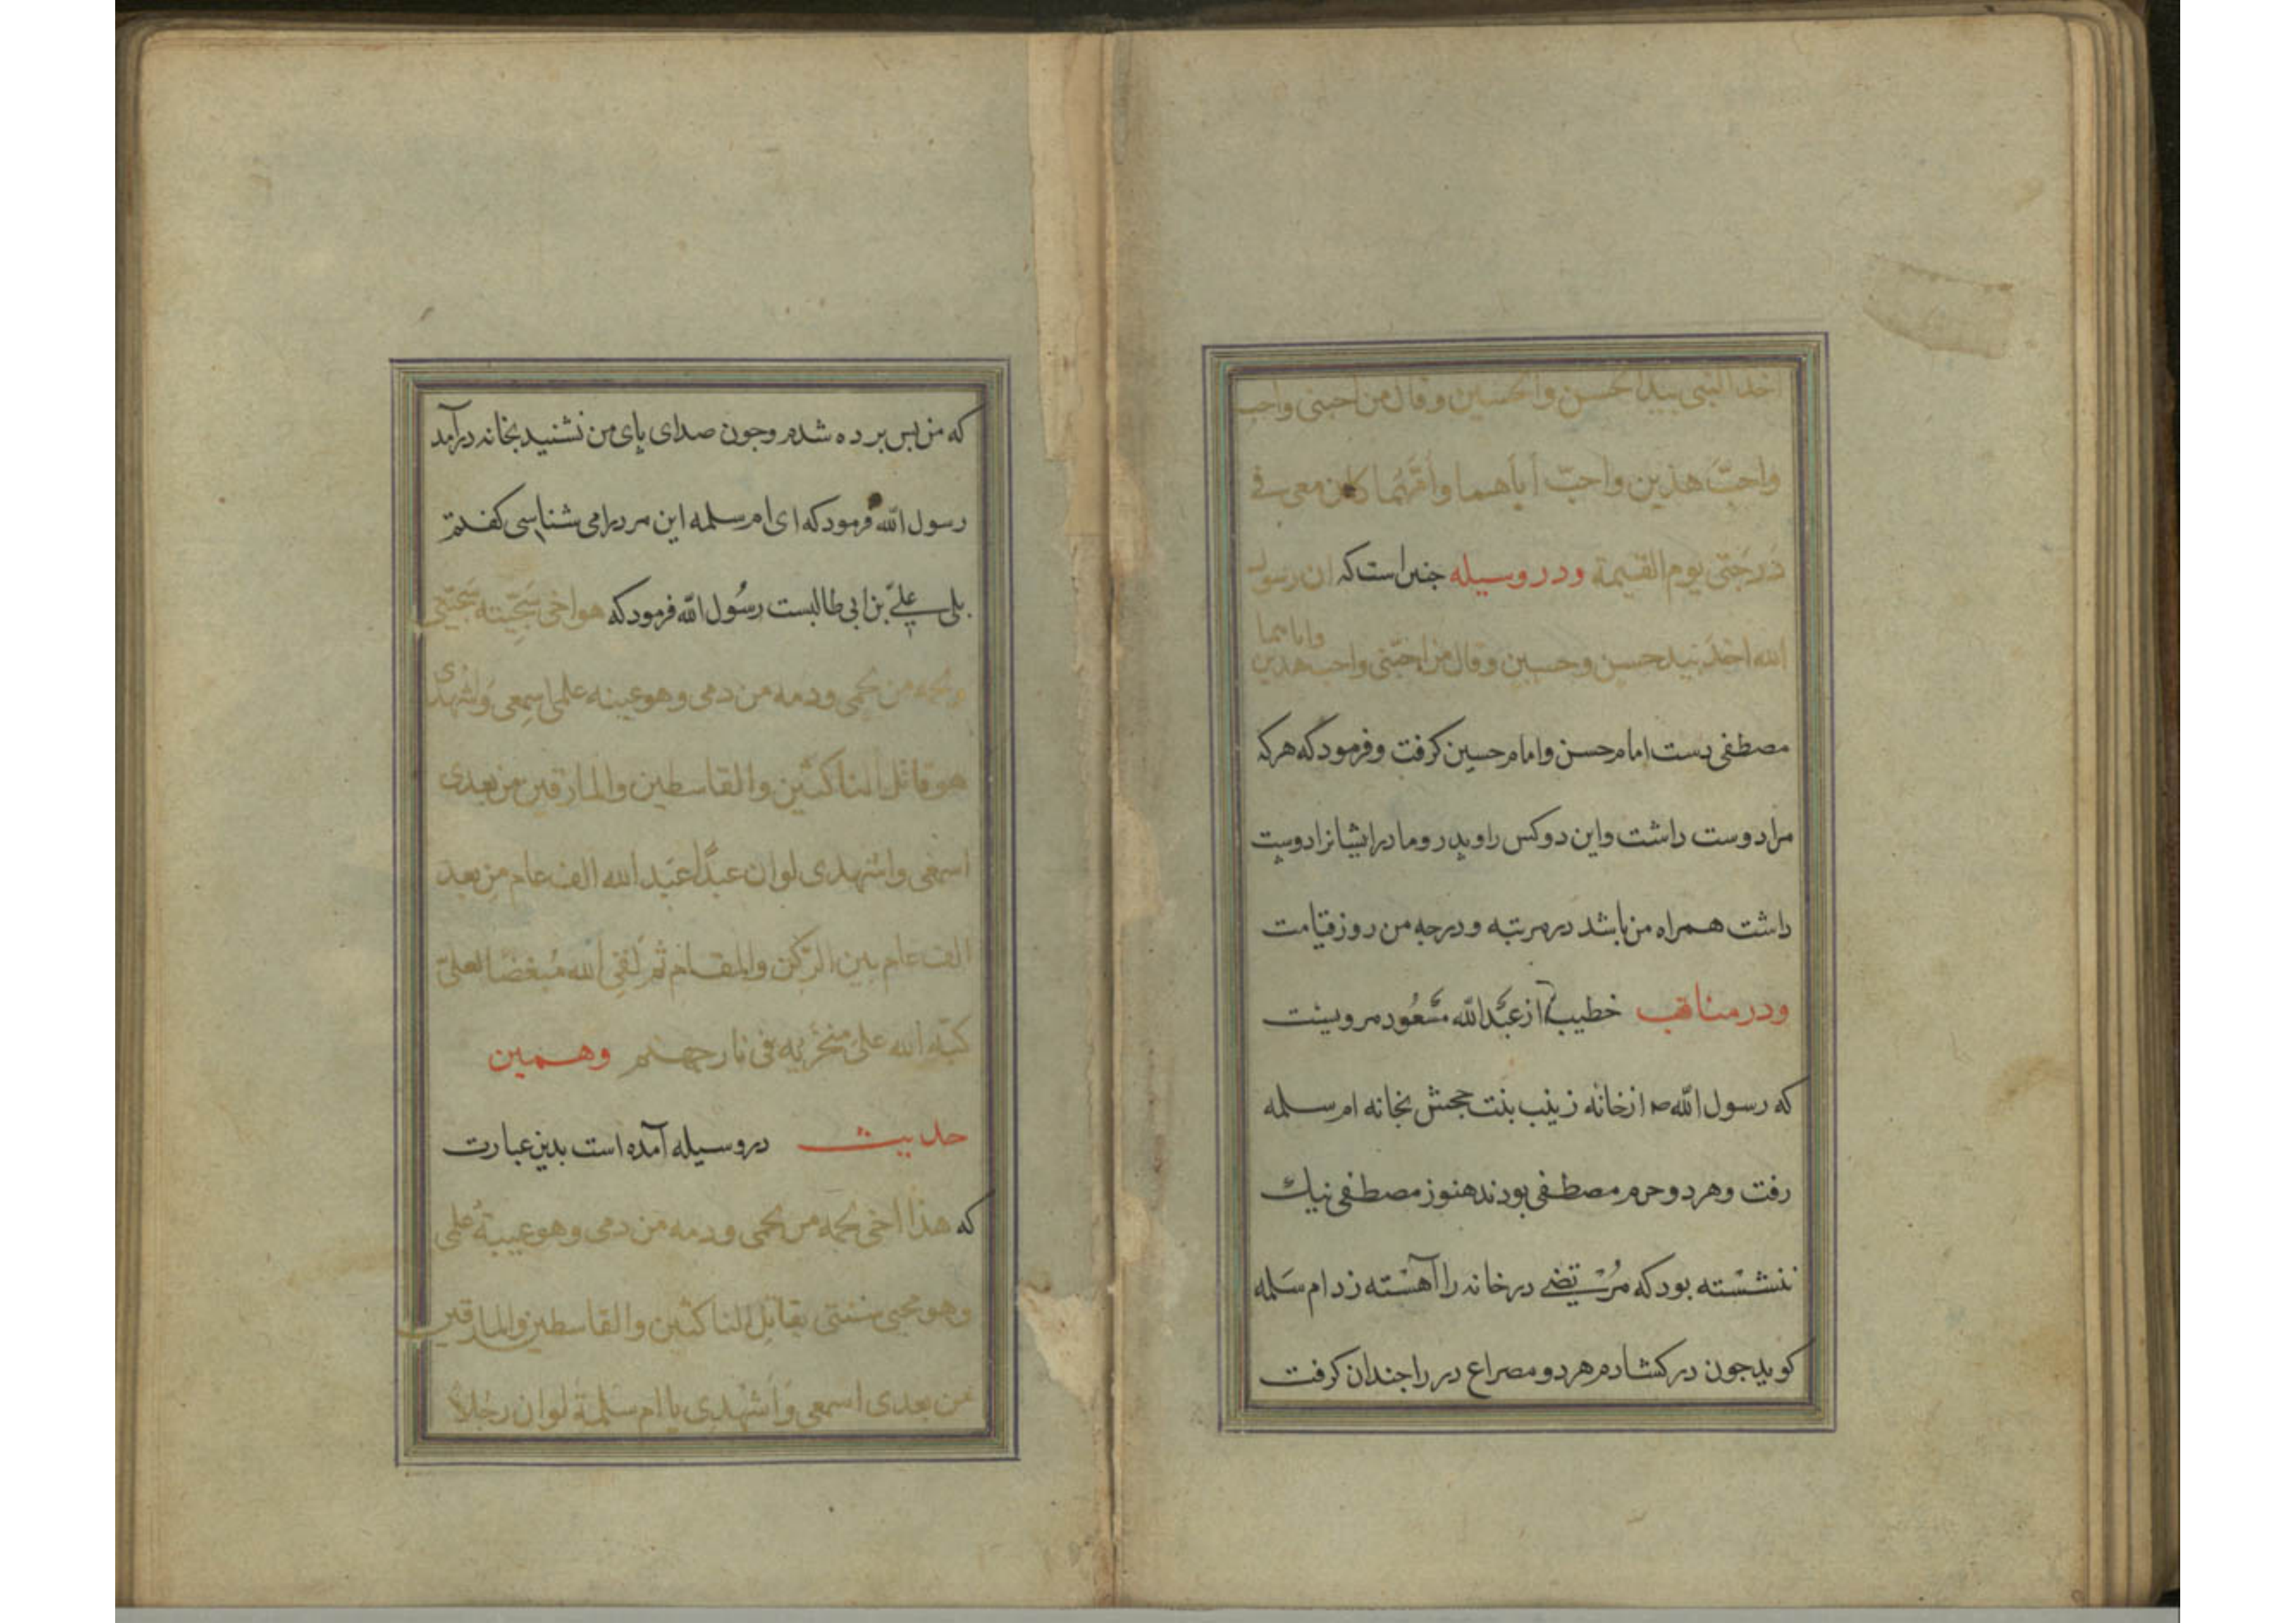 اخذ النبی بید الحسن والحسین وقال من احبنی واحب
واحبّ هذین واحبّ اباهما وامّهما کان معی فی
دَرجَتی یوم القیمة ودر وسیله جنین است که ان رسول
الله اخذ بید حسن وحسین وقال من احبّنی واحب هذین واباهما
مصطفی دست امام حسن وامام حسین کرفت وفرمود که هر که
مرا دوست داشت واین دو کس را وپدر ومادر ایشانرا دوست
داشت همراه من باشد در مرتبه ودرجه من روز قیامت
ودر مناقب خطیب از عبدالله مسعود مرویست
که رسول الله ص از خانه زینب بنت جحش بخانه ام سلمه
رفت وهر دو حرم مصطفی بودند هنوز مصطفی نیك
ننشسته بود که مرتضی در خانه را آهسته زد ام سلمه
کوید جون در کشادم هر دو مصراع در را جندان کرفت
که من بس برده شدم وجون صدای پای من نشنید بخانه درآمد
رسول الله فرمود که ای ام سلمه این مرد را می شناسی کفتم
بلی علیّ بن ابی طالبست رسُول الله فرمود که هو اخی سَجیّته سَجیّتی
ولحمه من لحمی ودمه من دمی وهو عیبنه علمی اسمعی واشهدی
هو قاتل الناکثین والقاسطین والمارقین من بعدی
اسمعی واشهدی لو ان عبدًا عبَد الله الف عام من بعد
الف عام بین الرّکن والمقام ثم لَقِی الله مُبغضًا لعلیّ
کبّه الله علی منخرَیه فی نار جهنم وهمین
حدیث در وسیله آمده است بدین عبارت
که هذا اخی لحمه من لحمی ودمه من دمی وهو عیبةُ علمی
وهو محیی سنتی یقاتل الناکثین والقاسطین والمارقین
من بعدی اسمعی وَاشهدی یا ام سَلمة لو ان رَجُلاً